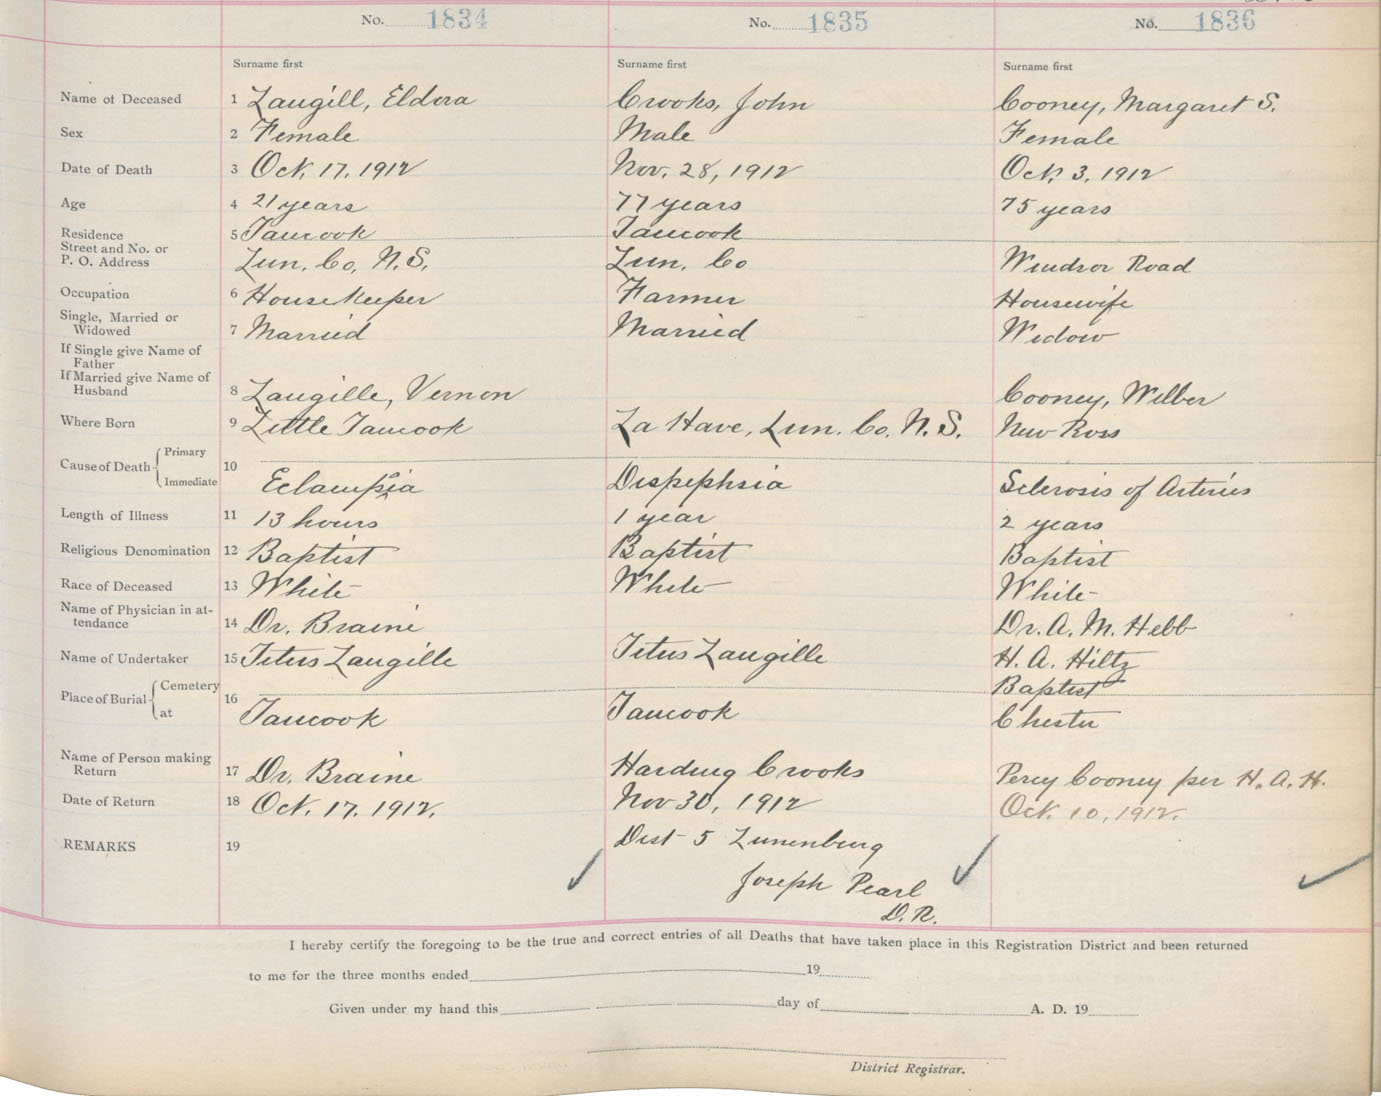 No. 1834 No. 1835 No. 1836
Surname first Surname first Surname first
Name of Deceased 1 Langill, Eldora Crooks, John Cooney, Margaret S.
Sex 2 Female Male Female
Date of Death 3 Oct. 17. 1912 Nov. 28, 1912 Oct. 3, 1912
Age 4 21 years 77 years 75 years
Residence 5 Tancook Tancook
Street and No. or
P. O. Address Lun. Co, N.S. Lun. Co Windsor Road
Occupation 6 House Keeper Farmer Housewife
Single, Married or
Widowed 7 Married Married Widow
If Single give Name of
Father
If Married give Name of
Husband 8 Langille, Vernon Cooney, Wilber
Where Born 9 Little Tancook La Have, Lun. Co. N.S. New Ross
Cause of Death Primary 10
Immediate Eclampsia Dispephsia Sclerosis of Arteries
Length of Illness 11 13 hours 1 year 2 years
Religious Denomination 12 Baptist Baptist Baptist
Race of Deceased 13 White White White
Name of Physician in at-
tendance 14 Dr. Braine Dr. A. M. Hebb
Name of Undertaker 15 Titus Langille Titus Langille H. A. Hiltz
Place of Burial Cemetery 16 Baptist
at Tancook Tancook Chester
Name of Person making
Return 17 Dr. Braine Harding Crooks Percy Cooney per H. A. H.
Date of Return 18 Oct. 17. 1912. Nov 30, 1912 Oct. 10, 1912.
REMARKS 19 Dist 5 Lunenburg
Joseph Pearl
D. R.
I hereby certify the foregoing to be the true and correct entries of all Deaths that have taken place in this Registration District and been returned
to me for the three months ended 19
Given under my hand this day of A. D. 19
District Registrar.